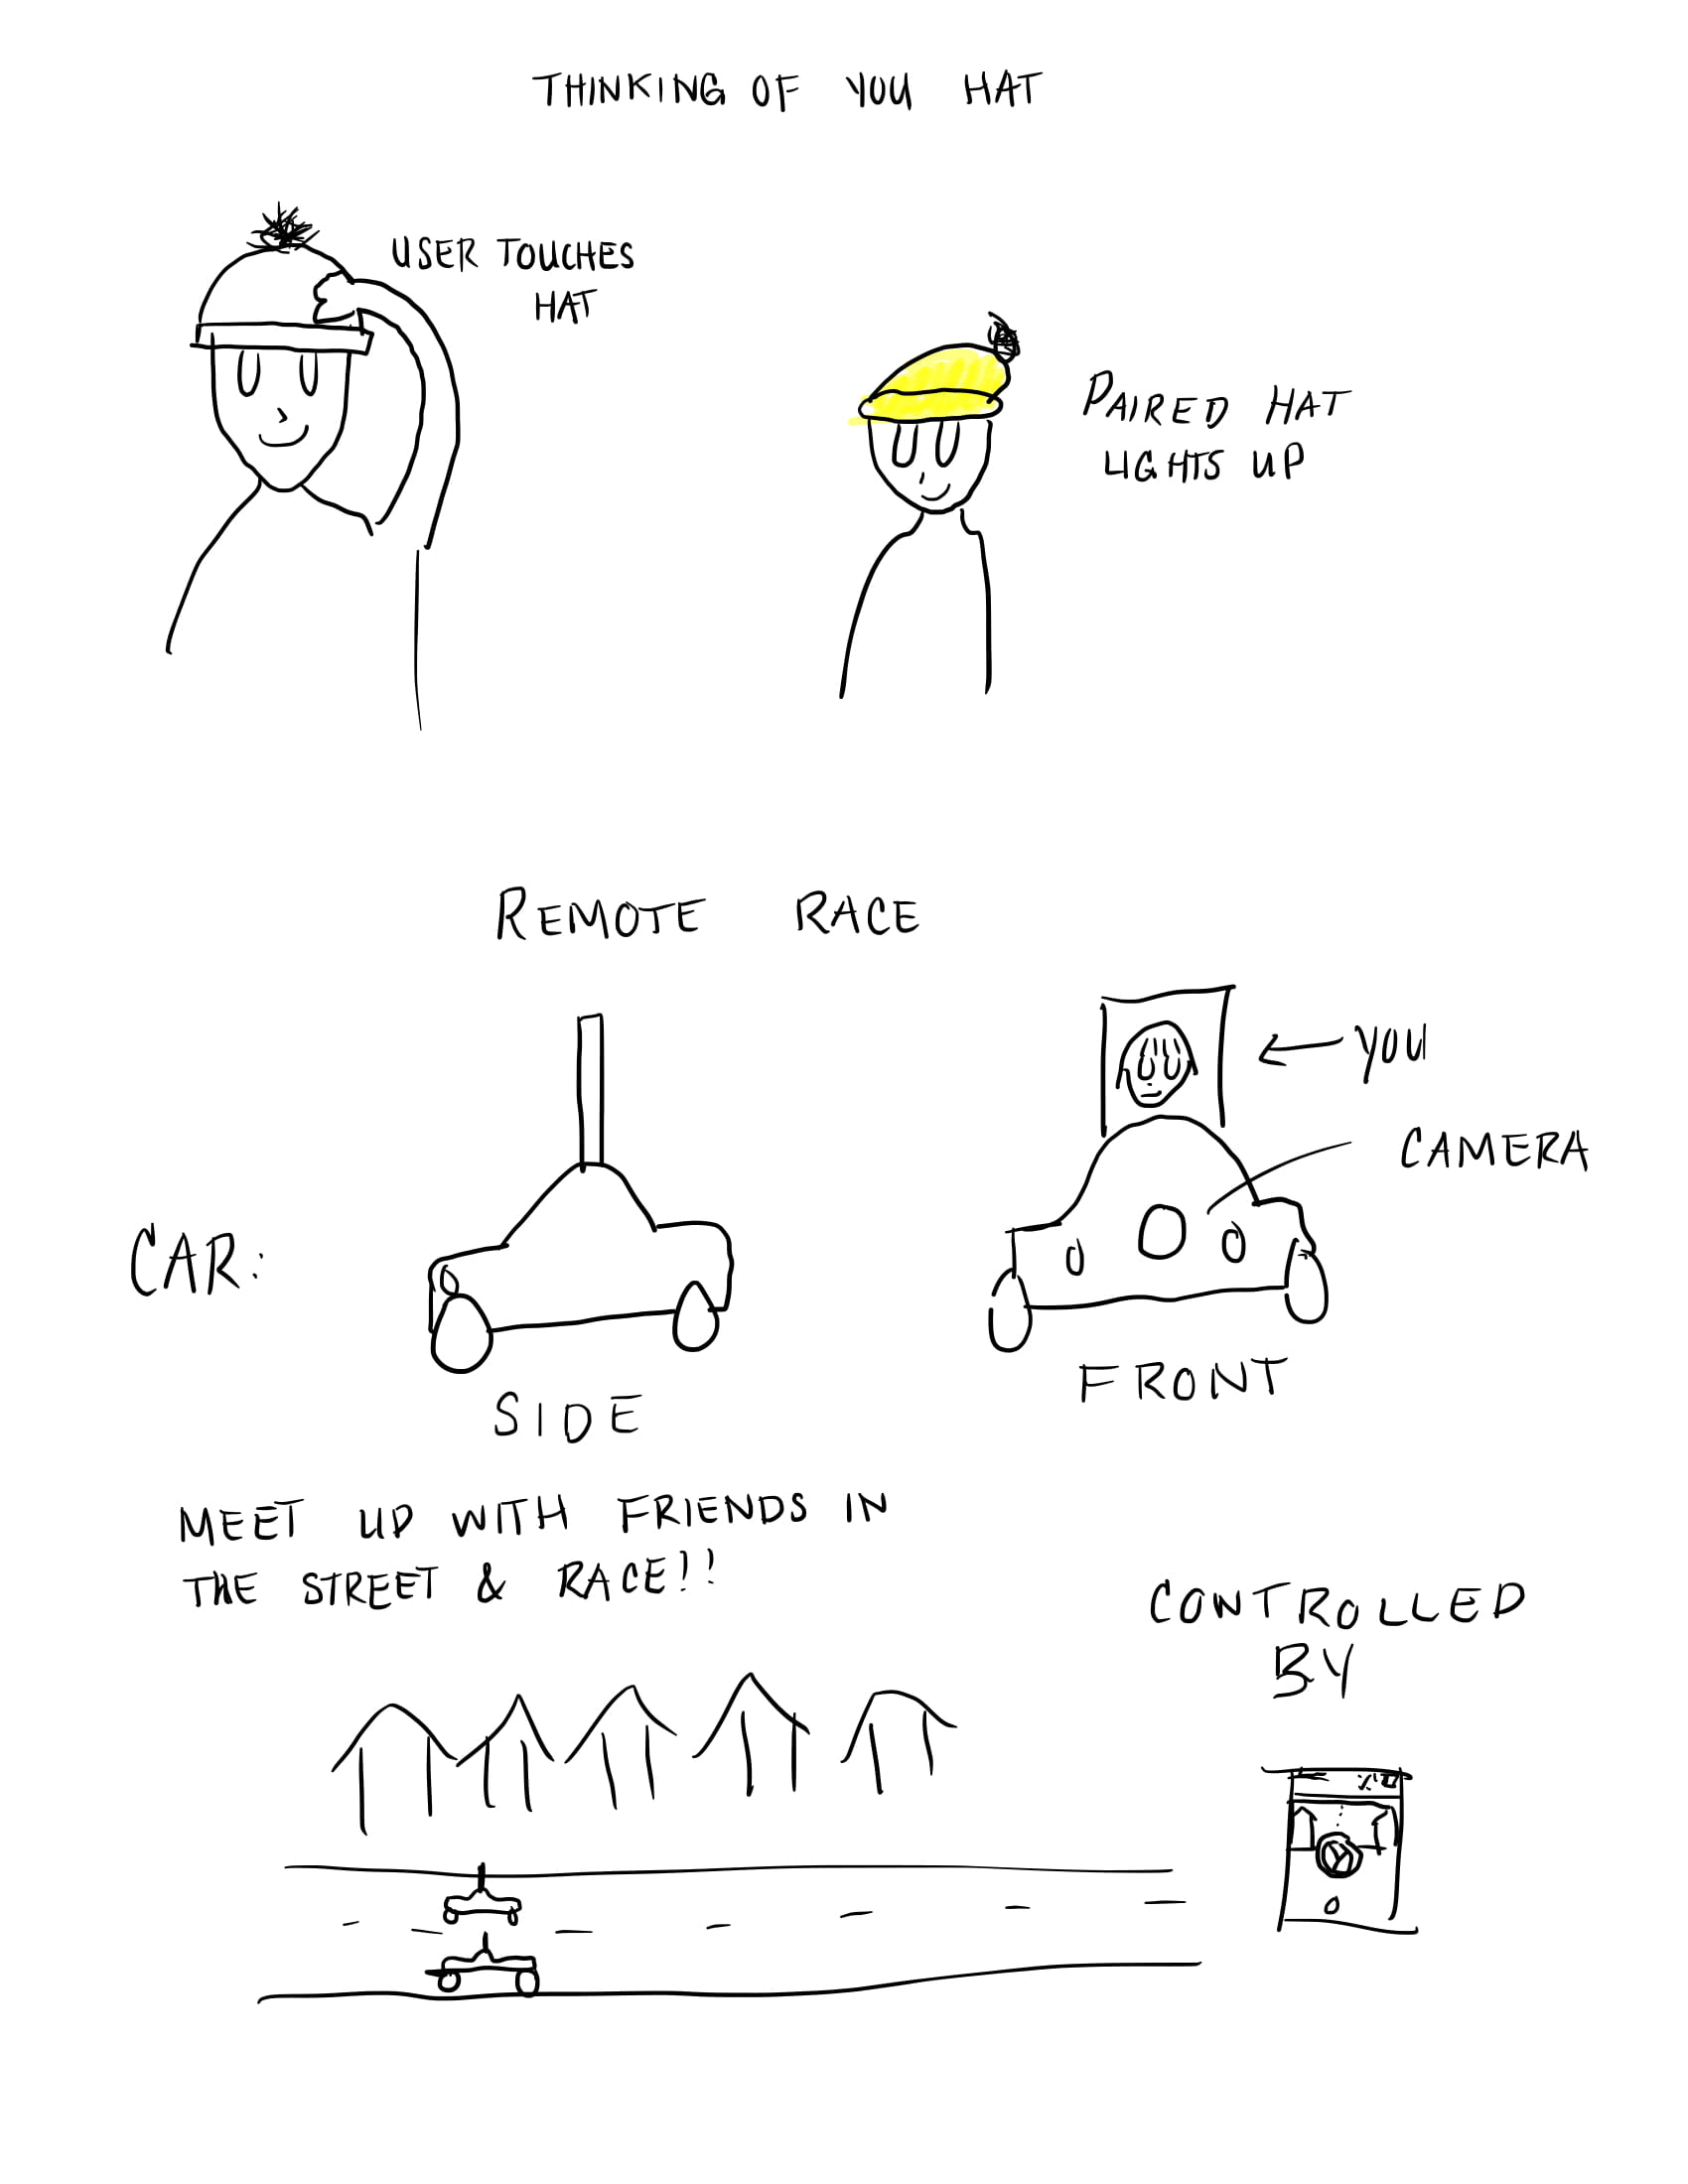 THINKING OF YOU HAT
USER TOUCHES
HAT
PAIRED HAT
LIGHTS UP
REMOTE RACE
YOU
CAMERA
CAR:
FRONT
SIDE
MEET UP WITH FRIENDS IN
THE STREET & RACE!!
CONTROLLED
BY